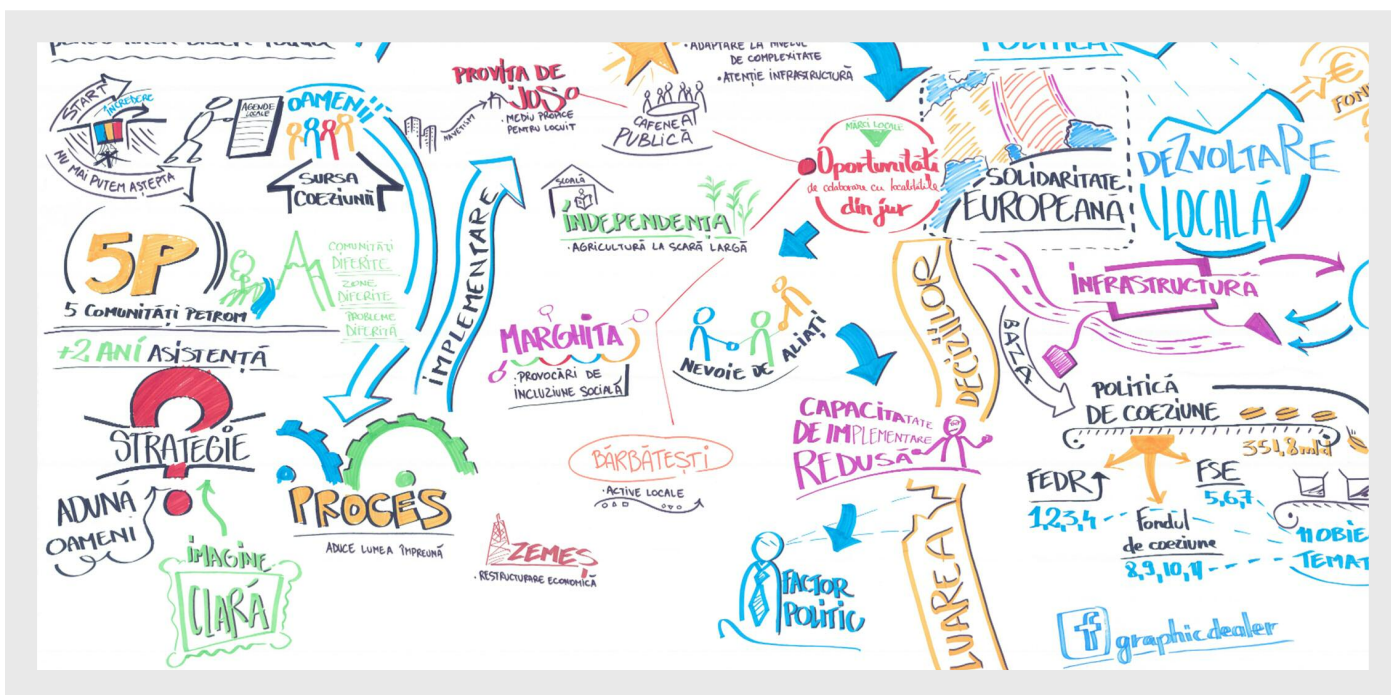 START
ÎNCREDERE
NU MAI PUTEM AȘTEPTA
AGENDE
LOCALE
OAMENII
SURSA
COEZIUNII
5P
5 COMUNITĂȚI PETROM
+2 ANI ASISTENȚĂ
COMUNITĂȚI
DIFERITE
ZONE
DIFERITE
PROBLEME
DIFERITĂ
STRATEGIE
ADUNĂ
OAMENI
IMAGINE
CLARĂ
PROCES
ADUCE LUMEA ÎMPREUNĂ
IMPLEMENTARE
PROVIȚA DE
JOS
· MEDIU PROPICE
PENTRU LOCUIT
NAVETISM
CAFENEA
PUBLICĂ
· ADAPTARE LA NIVELUL
DE COMPLEXITATE
· ATENȚIE INFRASTRUCTURĂ
ȘCOALĂ
INDEPENDENȚA
· AGRICULTURĂ LA SCARĂ LARGĂ
MARGHITA
· PROVOCĂRI DE
INCLUZIUNE SOCIALĂ
BĂRBĂTEȘTI
· ACTIVE LOCALE
ZEMEȘ
· RESTRUCTURARE ECONOMICĂ
MĂRCI LOCALE
Oportunități
de colaborare cu localitățile
din jur
NEVOIE DE ALIAȚI
CAPACITATATE
DE IMPLEMENTARE
REDUSĂ
FACTOR
POLITIC
LUAREA
DECIZIILOR
POLITICĂ
SOLIDARITATE
EUROPEANĂ
DEZVOLTARE
LOCALĂ
€
FON
INFRASTRUCTURĂ
BAZA
POLITICĂ
DE COEZIUNE
351,8 mld
FEDR
1,2,3,4
Fondul
de coeziune
8,9,10,11
FSE
5,6,7
11 OBIE
TEMAT
f graphicdealer